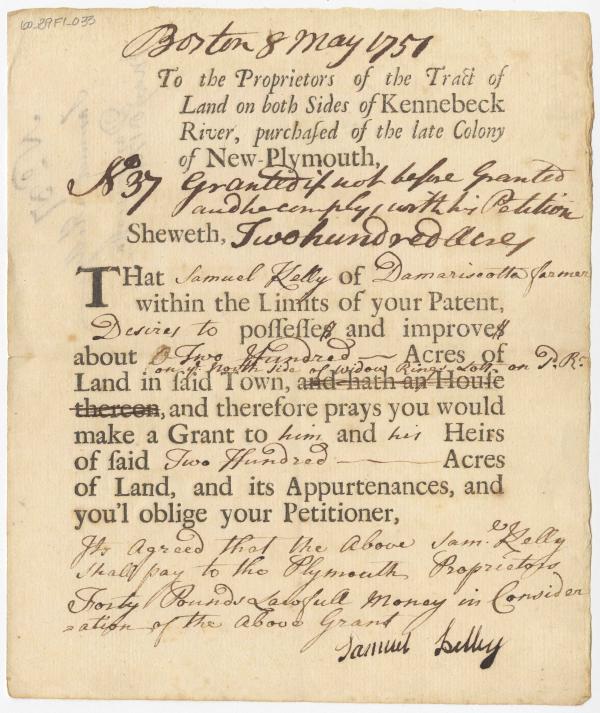 60_29F1_033
Boston 8 May 1751
To the Proprietors of the Tract of
Land on both Sides of Kennebeck
River, purchaſed of the late Colony
of New-Plymouth,
No 37 Granted if not before Granted
and he comply with his Petition
Sheweth, Two hundred Acres
THat Samuel Kelly of Damariscotta farmer
within the Limits of your Patent,
Desires to poſſeſſes and improves
about Two Hundred Acres of
on ye North side of widow Kings Lott on D. Rr
Land in ſaid Town, and hath an Houſe
thereon, and therefore prays you would
make a Grant to him and his Heirs
of ſaid Two Hundred Acres
of Land, and its Appurtenances, and
you'l oblige your Petitioner,
Its Agreed that the Above Saml Kelly
shall pay to the Plymouth Proprietors
Forty Pounds Lawfull Money in Consider
=ation of the Above Grant
Samuel Kelley